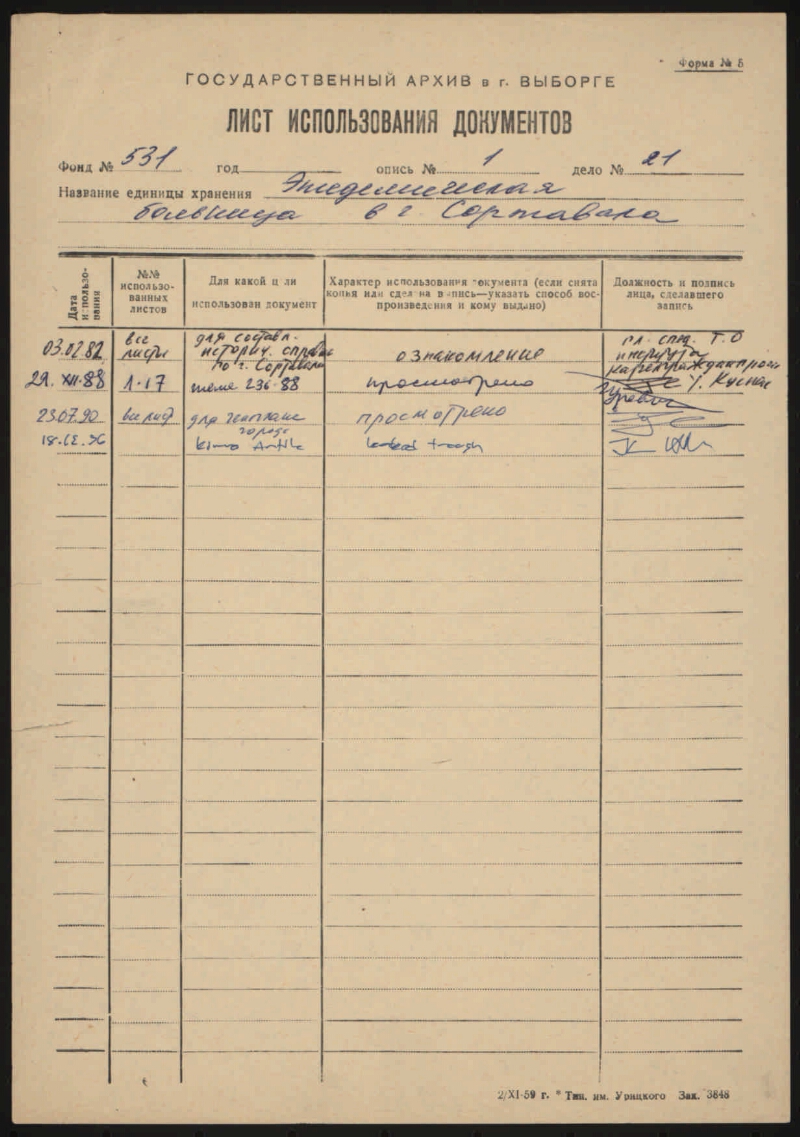 Форма № 5
ГОСУДАРСТВЕННЫЙ АРХИВ в г. ВЫБОРГЕ
ЛИСТ ИСПОЛЬЗОВАНИЯ ДОКУМЕНТОВ
Фонд № 531 год опись № 1 дело № 21
Название единицы хранения Эпидемическая
больница в г. Сортавала
Дата использования
№№ использованных листов
Для какой ц ли использован документ
Характер использования документа (если снята копия или сдел на в пись—указать способ воспроизведения и кому выдано)
Должность и подпись лица, сделавшего запись
03.02.82 все листы для составл. историч. справки по г. Сортавала ознакомление гл. спец. Т.О института
29. XII.88 1-17 теме 236-88 просмотрено
23.07.90 все лист для генплана города просмотрено
Kimmo Antila
2/XI-59 г. * Тип. им. Урицкого Зак. 3848